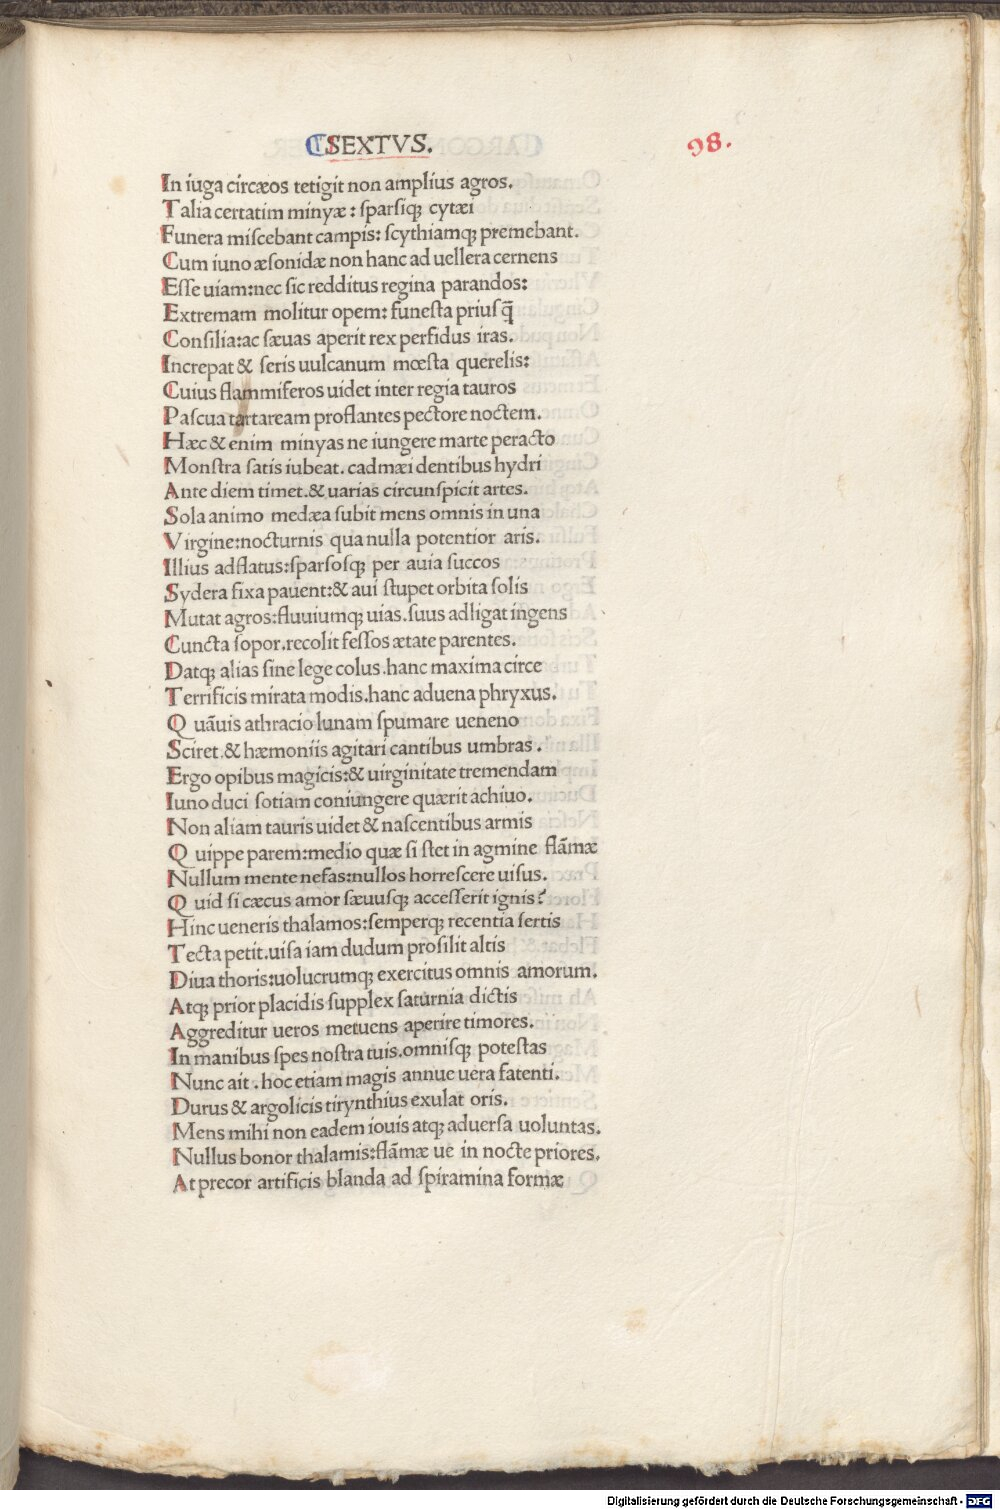 SEXTVS. 98.
In iuga circæos tetigit non amplius agros.
Talia certatim minyæ: sparsiqꝫ cytæi
Funera miscebant campis: scythiamqꝫ premebant.
Cum iuno æsonidæ non hanc ad uellera cernens
Esse uiam: nec sic redditus regina parandos:
Extremam molitur opem: funesta priusq̃
Consilia: ac sæuas aperit rex perfidus iras.
Increpat & seris uulcanum mœsta querelis:
Cuius flammiferos uidet inter regia tauros
Pascua tartaream proflantes pectore noctem.
Hæc & enim minyas ne iungere marte peracto
Monstra satis iubeat. cadmæi dentibus hydri
Ante diem timet. & uarias circunspicit artes.
Sola animo medæa subit mens omnis in una
Virgine: nocturnis qua nulla potentior aris.
Illius adflatus: sparsosqꝫ per auia succos
Sydera fixa pauent: & aui stupet orbita solis
Mutat agros: fluuiumqꝫ uias. suus adligat ingens
Cuncta sopor. recolit fessos ætate parentes.
Datqꝫ alias sine lege colus. hanc maxima circe
Terrificis mirata modis. hanc aduena phryxus.
Quãuis athracio lunam spumare ueneno
Sciret. & hæmoniis agitari cantibus umbras.
Ergo opibus magicis: & uirginitate tremendam
Iuno duci sotiam coniungere quærit achiuo.
Non aliam tauris uidet & nascentibus armis
Quippe parem: medio quæ si stet in agmine flãmæ
Nullum mente nefas: nullos horrescere uisus.
Quid si cæcus amor sæuusqꝫ accesserit ignis?
Hinc ueneris thalamos: semperqꝫ recentia sertis
Tecta petit. uisa iam dudum prosilit altis
Diua thoris: uolucrumqꝫ exercitus omnis amorum.
Atqꝫ prior placidis supplex saturnia dictis
Aggreditur ueros metuens aperire timores.
In manibus spes nostra tuis. omnisqꝫ potestas
Nunc ait. hoc etiam magis annue uera fatenti.
Durus & argolicis tirynthius exulat oris.
Mens mihi non eadem iouis atqꝫ aduersa uoluntas.
Nullus bonor thalamis: flãmæ ue in nocte priores.
At precor artificis blanda ad spiramina formæ
Digitalisierung gefördert durch die Deutsche Forschungsgemeinschaft - DFG